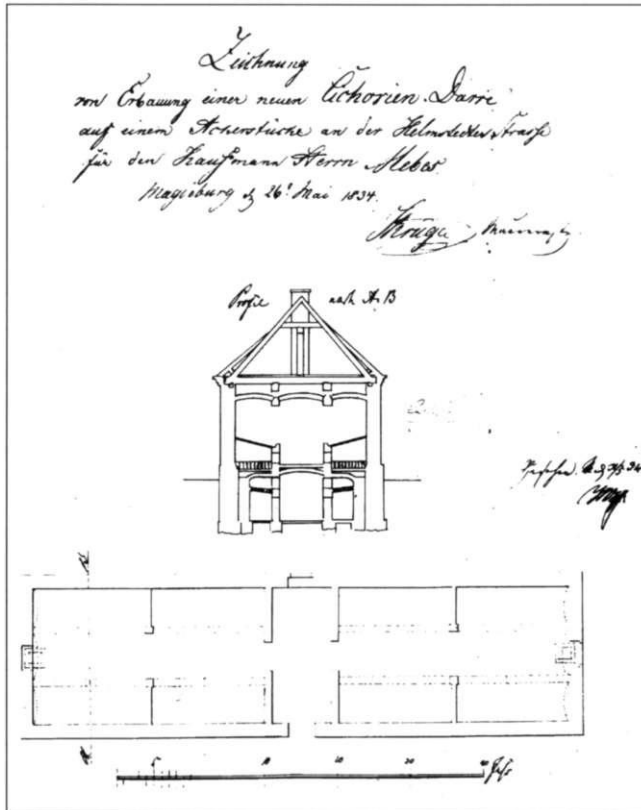 Zeichnung
von Erbauung einer neuen Cichorien-Darre
auf einem Ackerstücke an der Helmstedter Strasse
für den Kaufmann Herrn Mebes
Magdeburg d 26t Mai 1834.
Profil nach A. B
10 20 30 40 Fuss